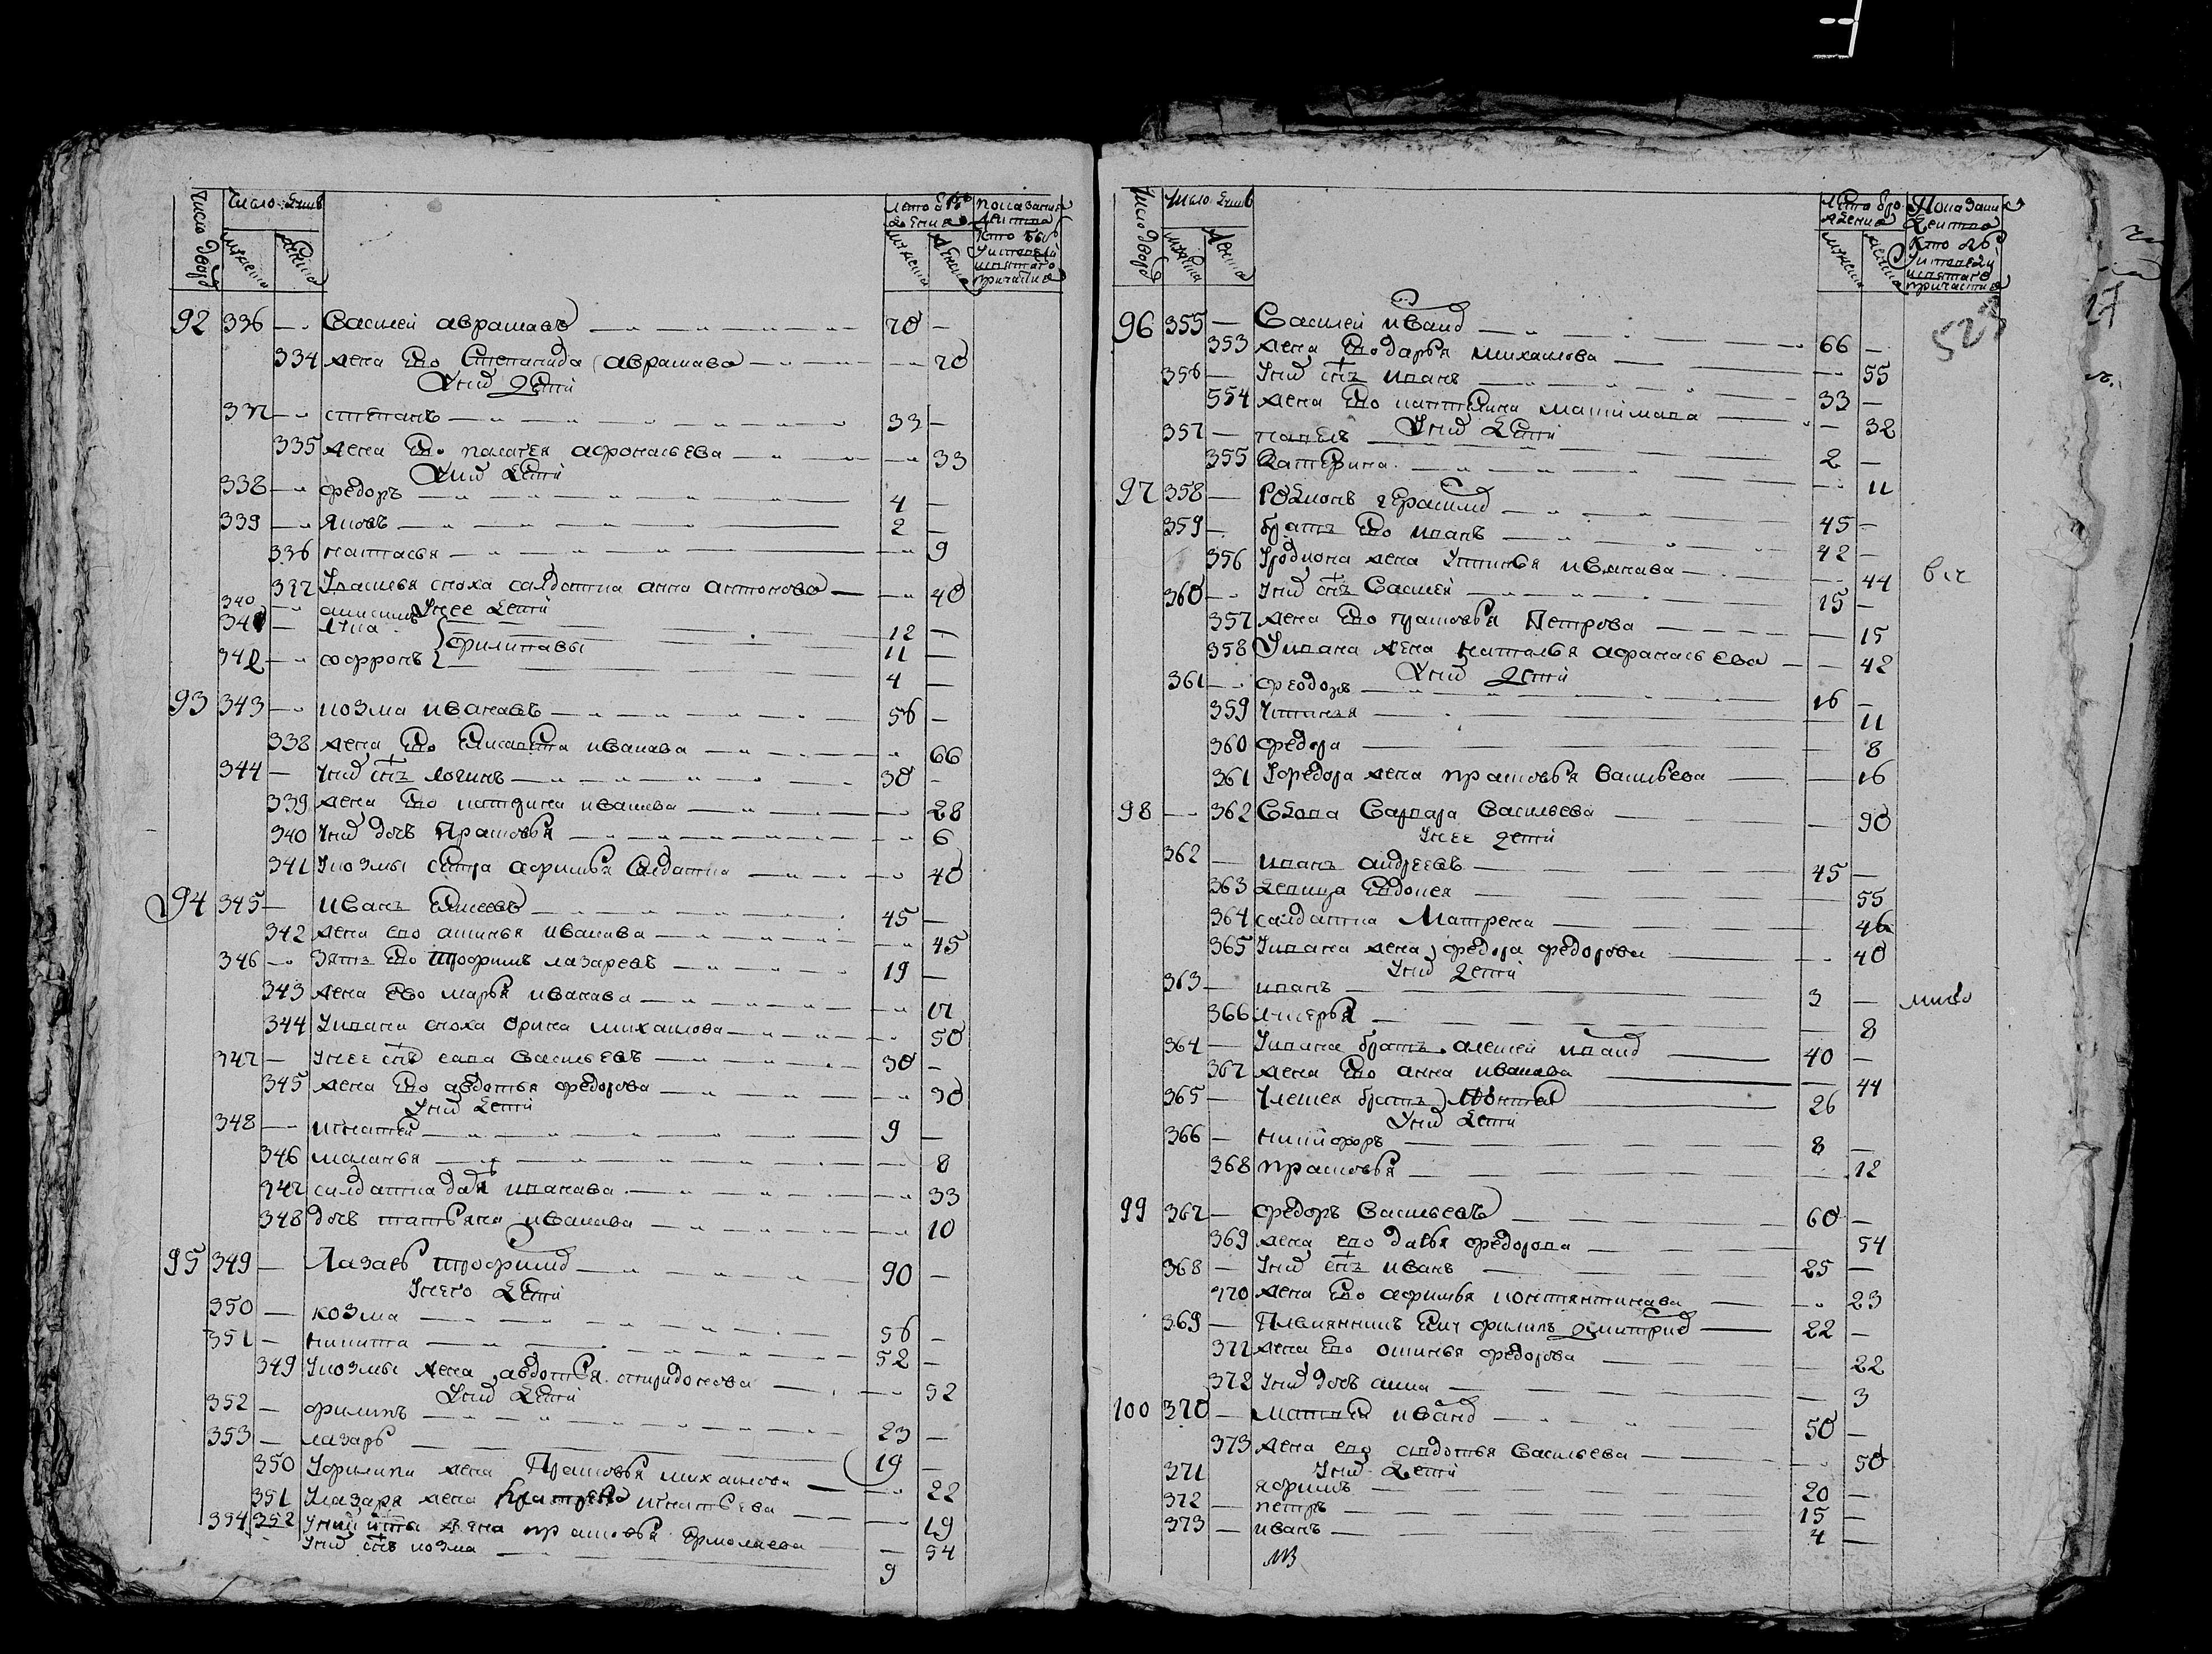 Число дворо Число душъ Лета от рождения Показание действа
мужеска женска мужеска женска кто былъ у исповеди и святаго причастия
92 336 Василей аврамавъ 70
334 жена Ево Степанида аврамава 70
Унихъ Дети
337 степанъ 33
335 жена Ево палагея афонасьева 33
Унихъ Дети
338 федоръ 4
339 яковъ 2
336 настасья 9
337 Увасилья сноха салдатка анна антонова 40
340 Унее дети 12
341 лука 11
филипавы
342 софронъ 4
93 343 козма иванавъ 56
338 жена Ево Елисавета иванава 66
344 Унихъ снъ логинъ 30
339 жена Ево иванава 28
340 Унихъ дочь Прасковья 6
341 Укозмы сестра афимья Салдатка 40
94 345 Иванъ Елисеевъ 45
342 жена ево аксинья иванава 45
346 Зять Ево трофимъ лазаревъ 19
343 жена Ево марья иванава 17
344 Уивана сноха орина михаилова 50
347 Унее снъ сава Васильевъ 30
345 жена Ево авдотья федорова 30
Унихъ дети
348 игнатей 9
346 маланья 8
347 салдатка дарья иванава 33
348 дочь татьяна иванава 10
95 349 Лазарь трофимо 90
Унего Дети
350 козма 56
351 никита 52
349 Укозмы жена авдотья спиридонова 52
Унихъ Дети
352 филипъ 23
353 лазарь 19
350 Уфилипа жена Прасковья михаилова 22
351 Улазаря жена игнатьева 19
354 352 Уникиты жена прасковья Ермолаева 54
Унихъ снъ козма 9
Число дворо Число душъ Лета от рождения Показание действа
мужеска женска мужеска женска кто былъ у исповеди и святаго причастия
96 355 Василей ивано 66
523
353 жена Ево дарья михаилова 55
356 Унихъ снъ иванъ 33
354 жена Ево катерина 32
Унихъ Дети
357 павелъ 2
355 Катерина 11
97 358 Родионъ герасимо 45
359 братъ Ево иванъ 42
356 Уродиона жена Устинья иванава 44
360 Унихъ снъ Василей 15
357 жена Ево прасковья Петрова 15
358 Уивана жена наталья афанасьева 42
Унихъ Дети
361 феодоръ 16
359 Устинья 11
360 федора 8
361 Уфедора жена прасковья Васильева 16
98 362 Вдова Варвара Васильева 90
Унее дети
362 иванъ андреевъ 45
363 девица Евдокея 55
364 салдатка Матрена 46
365 Уивана жена федора федорова 40
Унихъ дети
363 иванъ 3
366 лукерья 8
364 Уивана братъ алексей ивано 40
367 жена Ево анна иванава 44
365 Улексея братъ 26
Унихъ Дети
366 никифоръ 8
368 прасковья 12
99 367 федоръ Васильевъ 60
369 жена ево дарья федорова 54
368 Унихъ снъ иванъ 25
370 жена Ево афимья константинава 23
369 Племянникъ Ихъ филипъ дмитрио 22
371 жена Ево оксинья федорова 22
372 Унихъ дочь анна 3
100 370 матвей ивано 50
373 жена ево авдотья Васильева 50
Унихъ Дети
371 яфимъ 20
372 петръ 15
373 иванъ 4